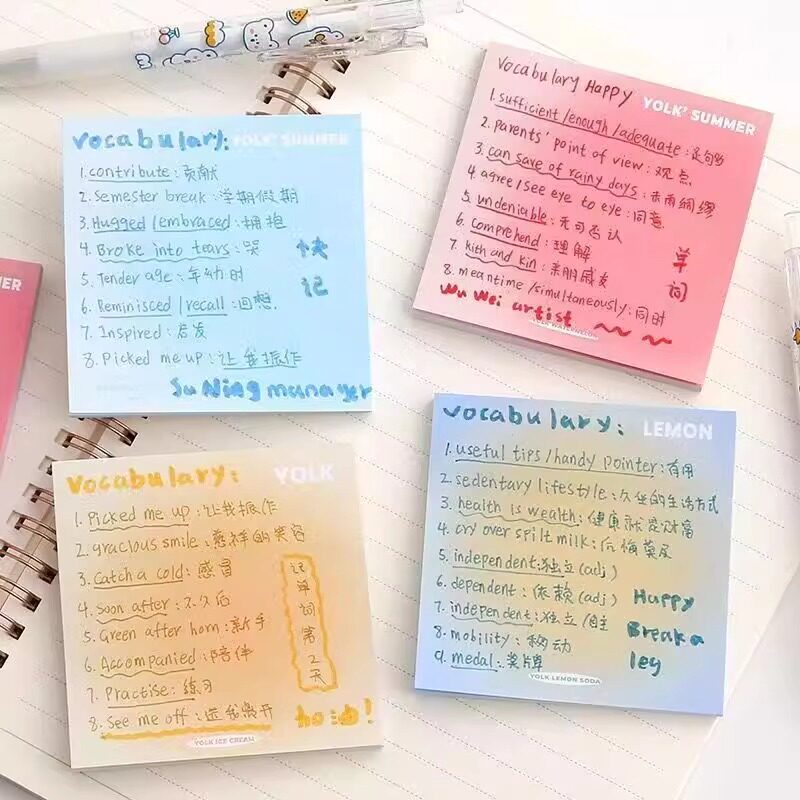 vocabulary: YOLK² SUMMER
1. contribute: 贡献
2. Semester break: 学期假期
3. Hugged / embraced: 拥抱
4. Broke into tears: 哭
5. Tender age: 年幼时
6. Reminisced / recall: 回想.
7. Inspired: 启发
8. Picked me up: 让我振作
快
记
Su Ning manager
vocabulary Happy YOLK² SUMMER
1. sufficient / enough / adequate: 足够
2. parents' point of view: 观点
3. can save of rainy days: 未雨绸缪
4 agree / see eye to eye: 同意
5. undeniable: 无可否认
6. comprehend: 理解
7. kith and kin: 亲朋戚友
8. meantime / simultaneously: 同时
单
词
Wu Wei artist
MER
vocabulary: YOLK
1. Picked me up: 让我振作
2. gracious smile: 慈祥的笑容
3. Catch a cold: 感冒
4. Soon after: 不久后
5. Green after horn: 新手
6. Accompanied: 陪伴
7. Practise: 练习
8. See me off: 送我离开
记
单
词
第
2
天
YOLK ICE CREAM
vocabulary: LEMON
1. useful tips / handy pointer: 有用
2. sedentary lifestyle: 久坐的生活方式
3. health is wealth: 健康就是财富
4. cry over spilt milk: 后悔莫及
5. independent: 独立 (adj)
6. dependent: 依赖 (adj)
7. independent: 独立 /自主
8. mobility: 移动
9. medal: 奖牌
Happy
Break a
leg
YOLK LEMON SODA